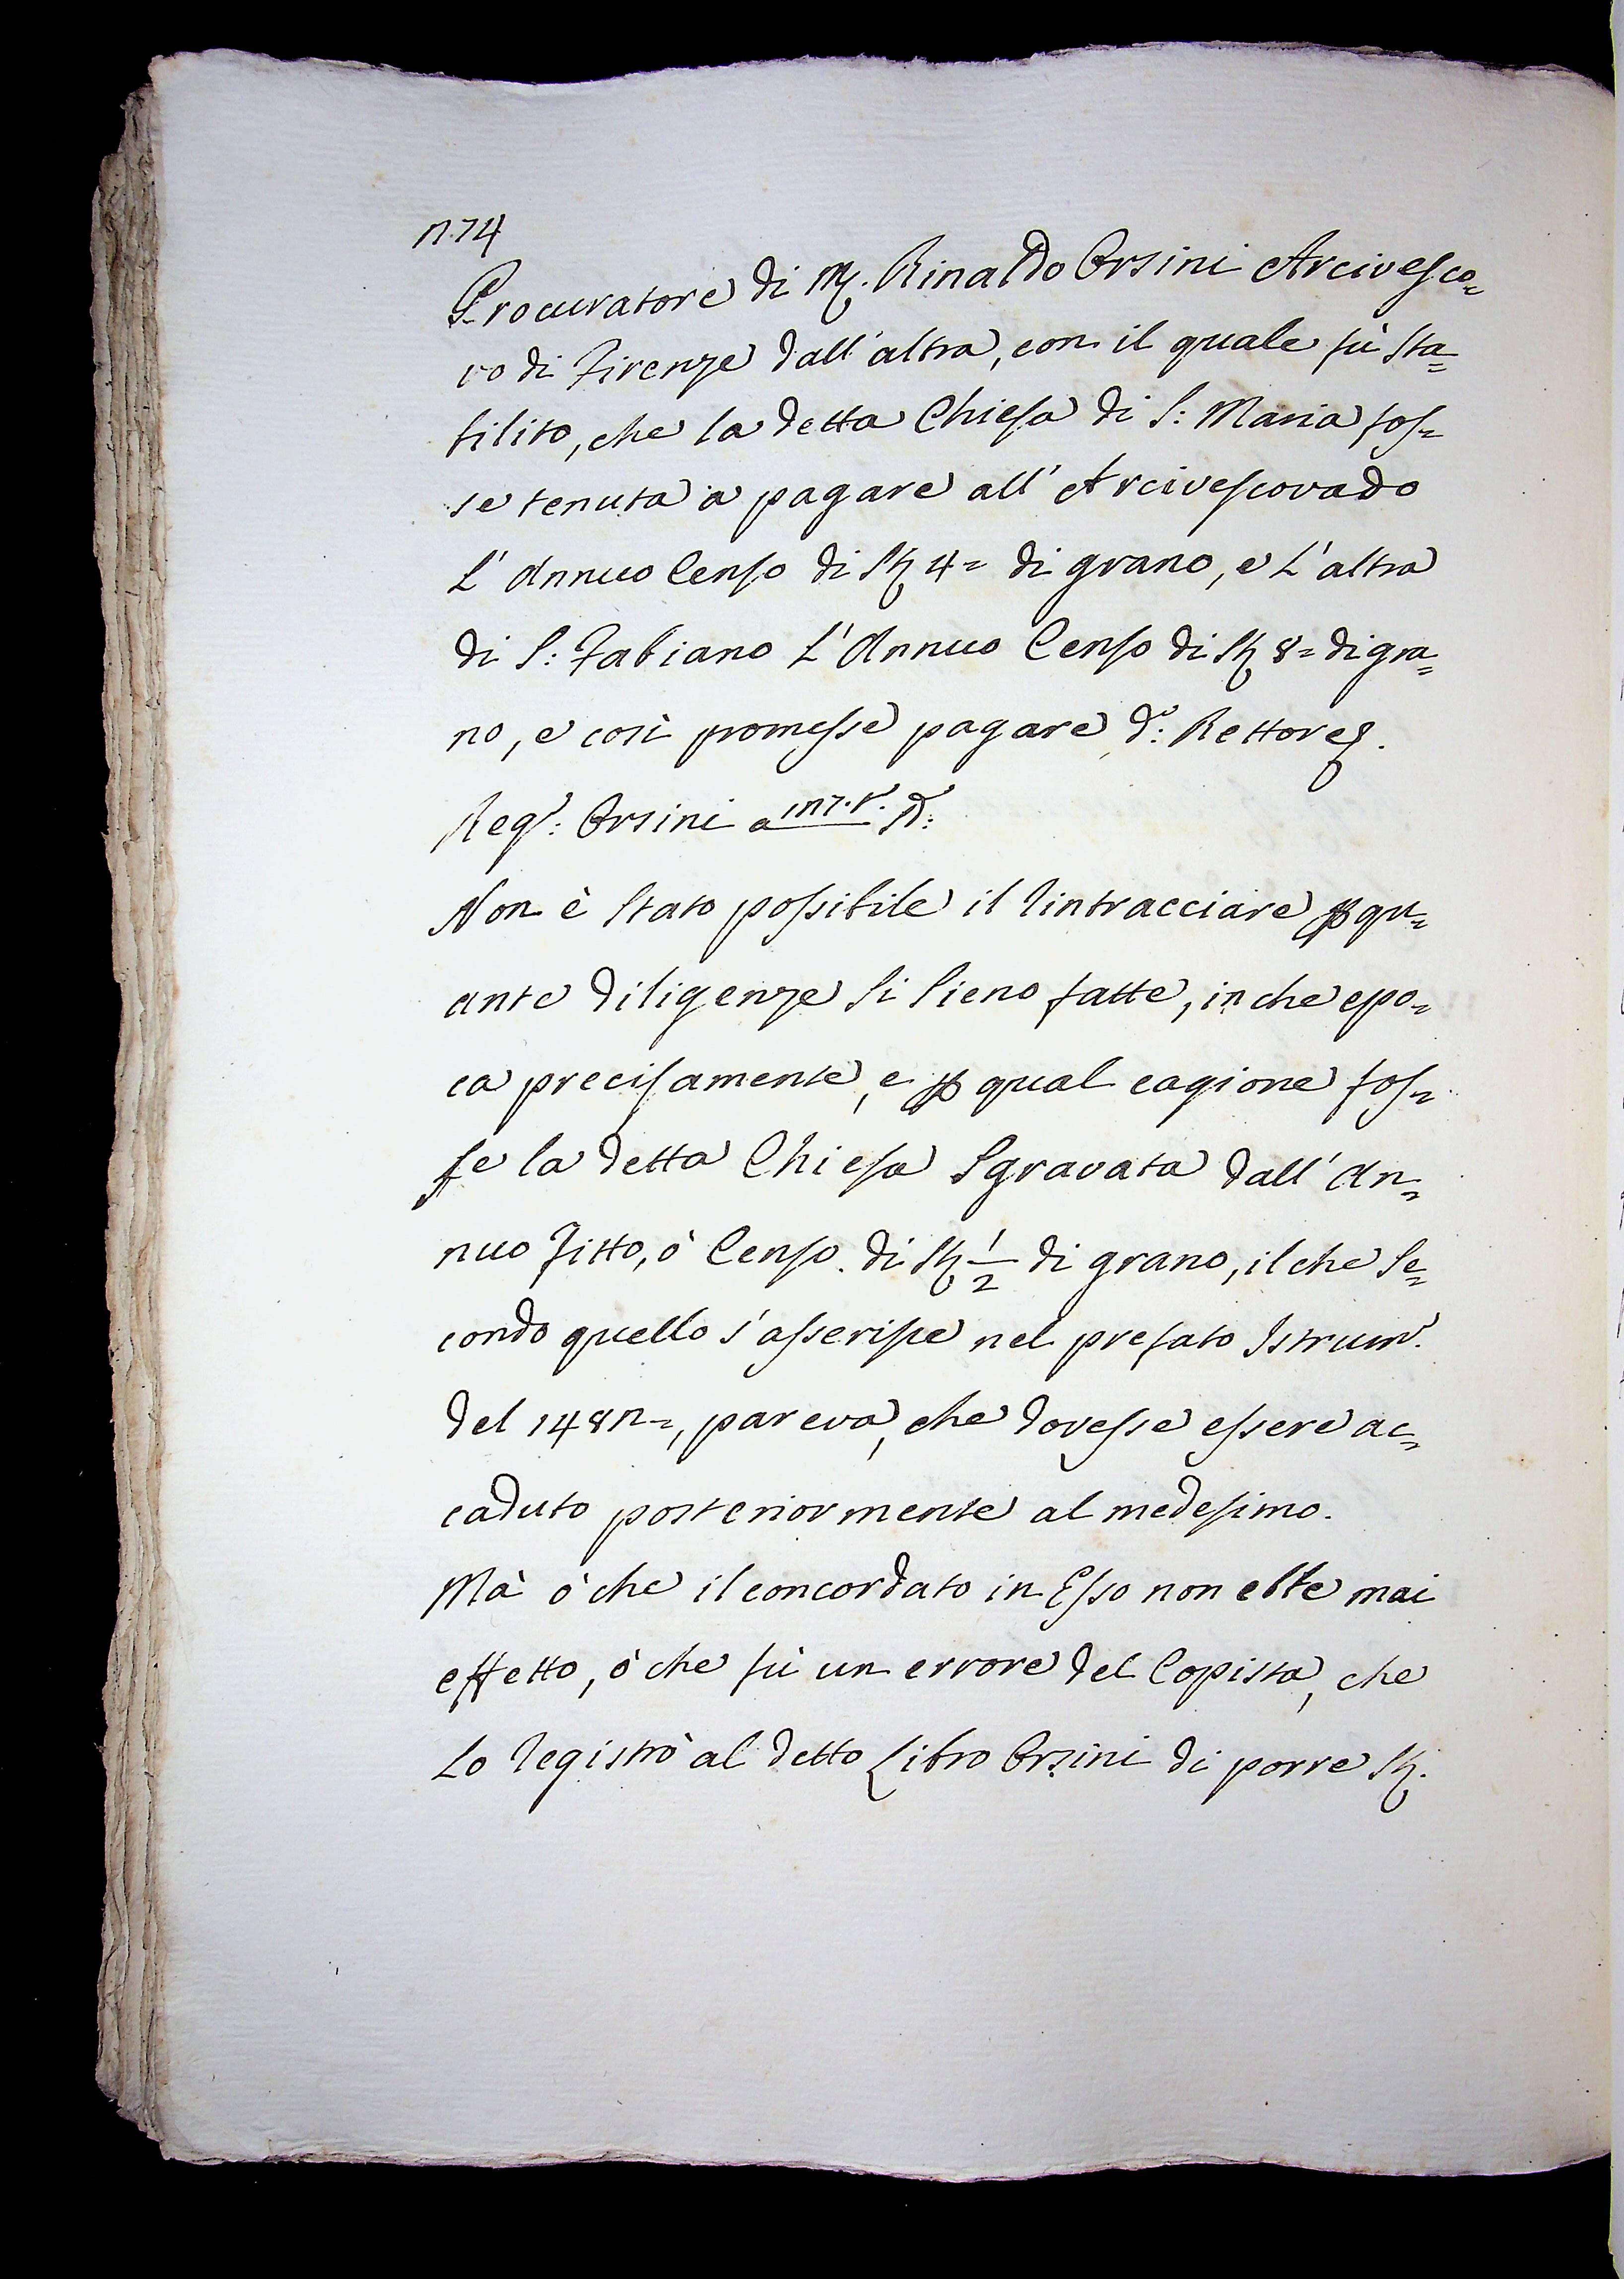 n. 74
Procuratore di M. Rinaldo Orsini Arcivesco=
vo di Firenze dall'altra, con il quale fù sta=
bilito, che la detta Chiesa di S: Maria fos=
se tenuta a pagare all'Arcivescovado
L'Annuo Censo di St 4= di grano, e L'altra
di S: Fabiano L'Annuo Censo di St 8= di gra=
no, e così promesse pagare d.º: Rettore
Reg.º: Orsini a
Non è stato possibile il rintracciare p qu=
ante diligenze si sieno fatte, in che epo=
ca precisamente, e p qual cagione fos=
se la detta Chiesa sgravata dall'An=
nuo Fitto, ò Censo di St 1/2 di grano, il che se=
condo quello s'asserisce nel prefato Istrum.º
del 148n=, pareva, che dovesse essere ac=
caduto posteriormente al medesimo.
Mà ò che il concordato in Esso non ebbe mai
effetto, ò che fù un errore del Copista, che
Lo registrò al detto Libro Orsini di porre St.